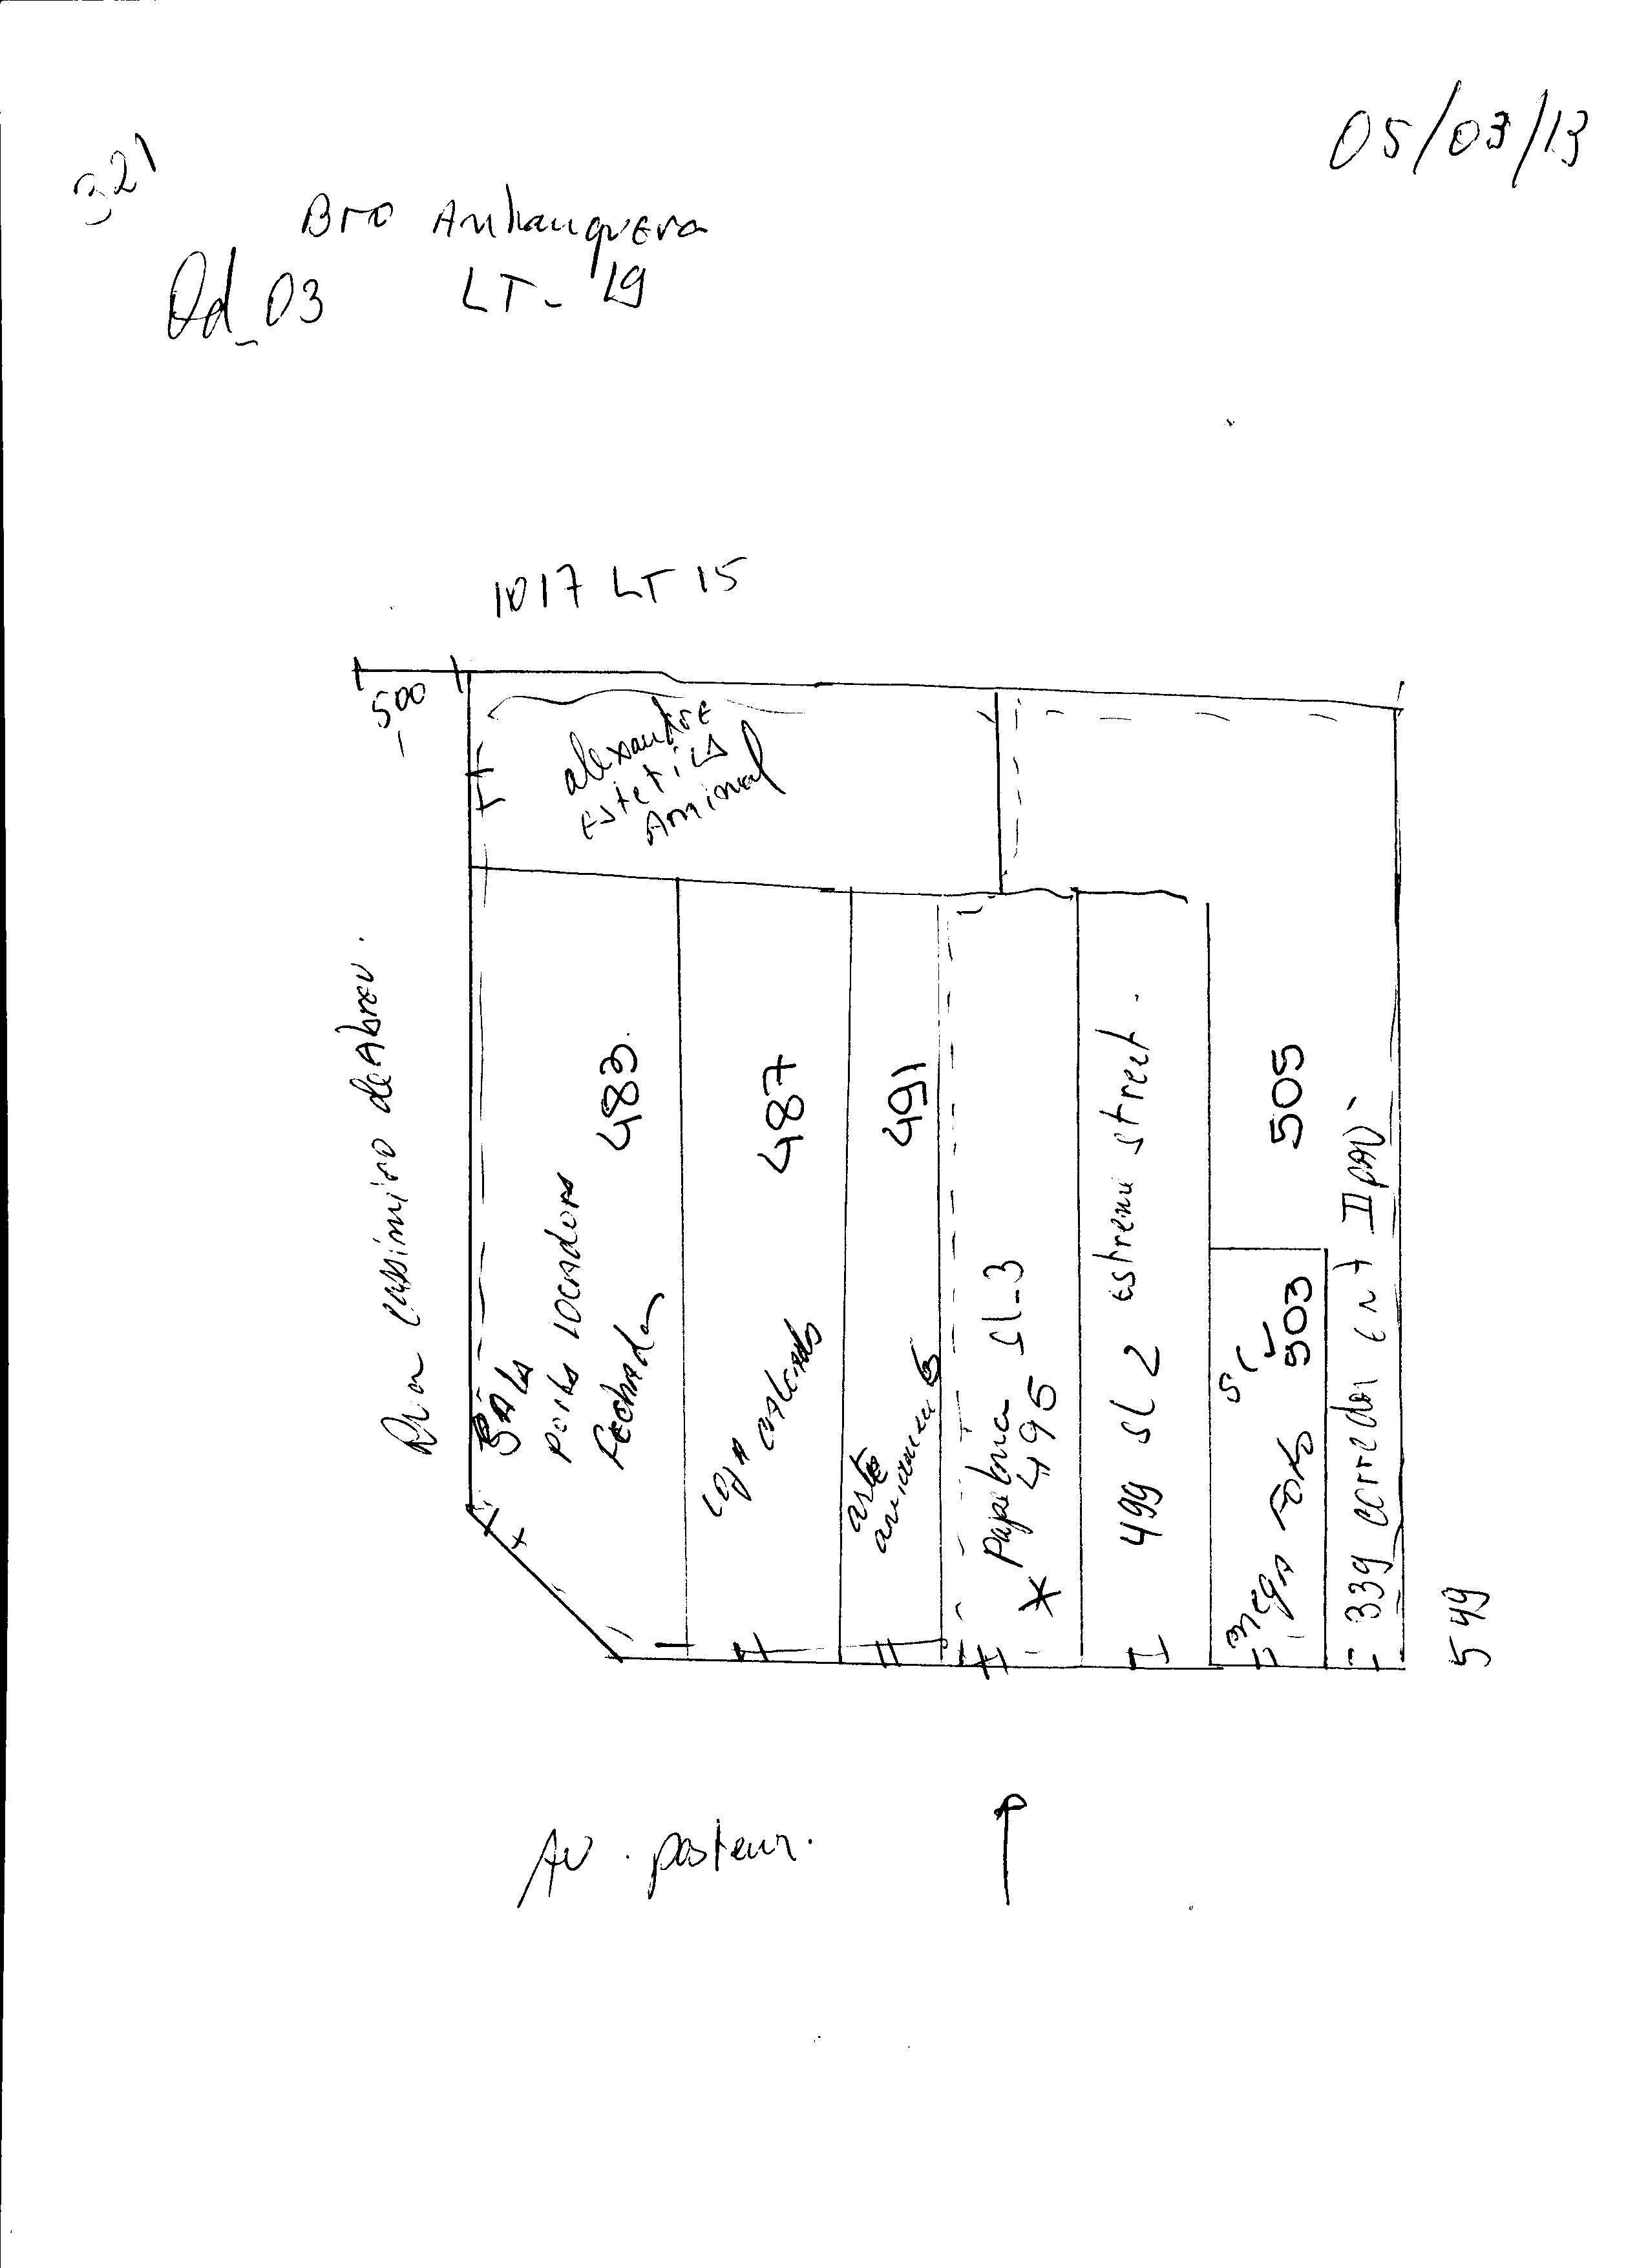 05/03/13
321
Bro Anhanguera
Qd_03 LT- 19
1017 LT 15
500
alexandre
Estetica
Animal
Rua Cassimiro de Abreu.
SALA
Fechada
483
Loja calcados
487
arte
491
Papelaria SL-3
* 495
499 SL 2 Estreme Street.
Mega
503
505
339 corredor Ent II pav.
549
Av. pasteur.